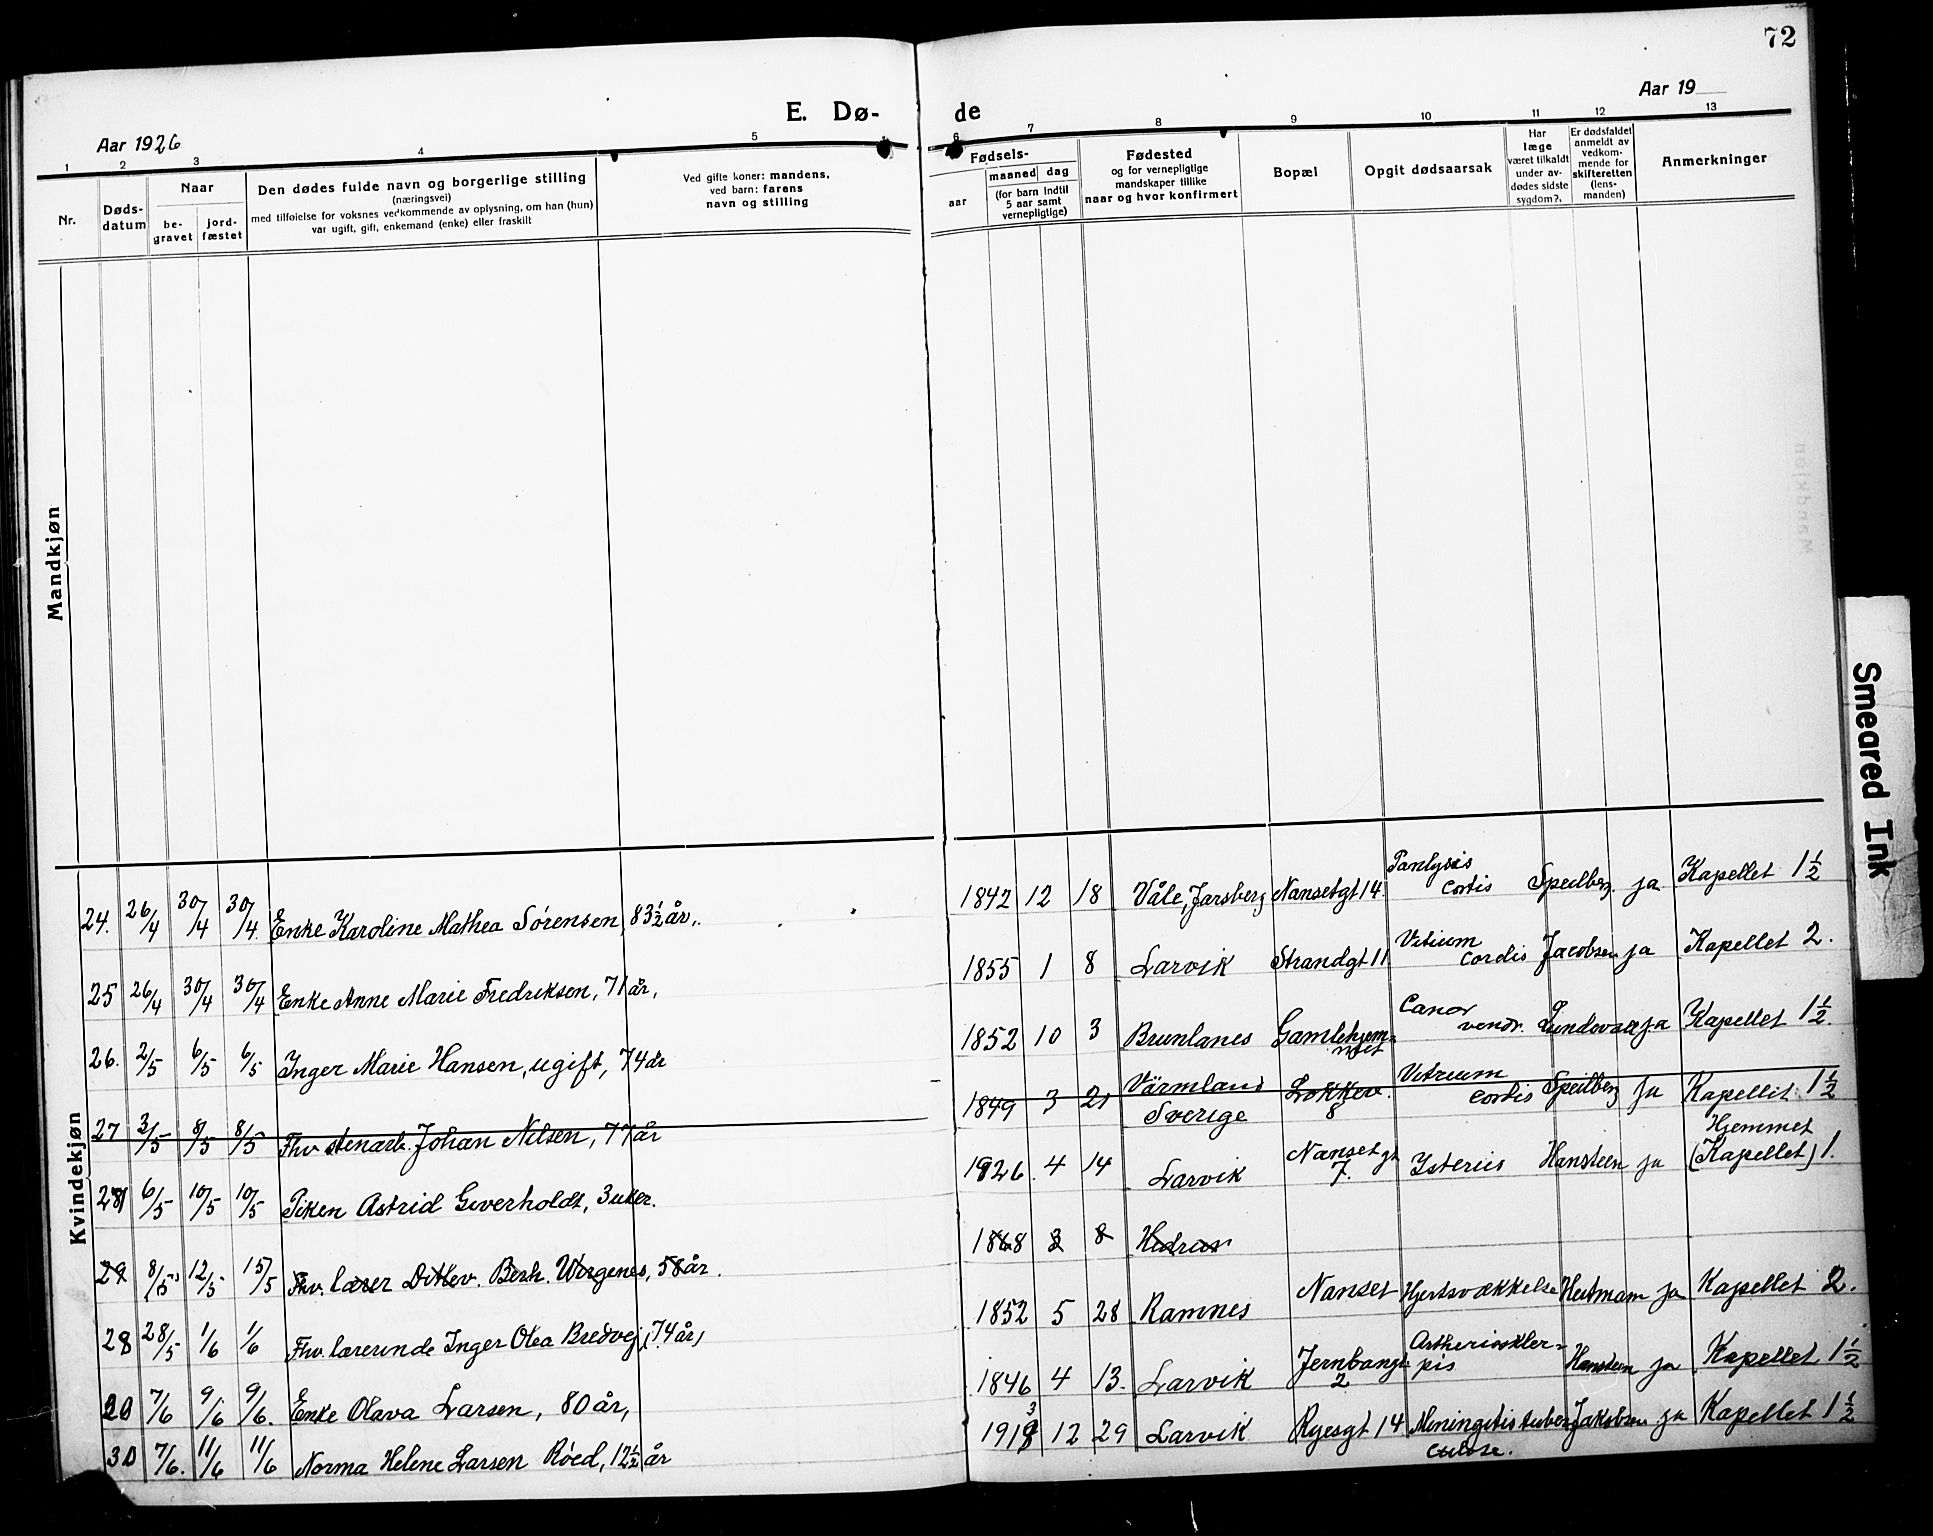 72
E. Dø- de
Aar 1926
Aar 19
1 2 3 4 5 6 7 8 9 10 11 12 13
Nr.
Døds-
datum
Naar
be-
gravet
jord-
fæstet
Den dødes fulde navn og borgerlige stilling
(næringsvei)
med tilføielse for voksnes vedkommende av oplysning, om han (hun)
var ugift, gift, enkemand (enke) eller fraskilt
Ved gifte koner: mandens,
ved barn: farens
navn og stilling
Fødsels-
aar
maaned dag
(for barn indtil
5 aar samt
vernepligtige)
Fødested
og for vernepligtige
mandskaper tillike
naar og hvor konfirmert
Bopæl
Opgit dødsaarsak
Har
læge
været tilkaldt
under av-
dødes sidste
sygdom?.
Er dødsfaldet
anmeldt av
vedkom-
mende for
skifteretten
(lens-
manden)
Anmerkninger
Mandkjøn
Kvindekjøn
24. 26/4 30/4 30/4. Enke Karoline Mathea Sørensen, 83 1/2 år,. 1842 12 18 Våle, Jarsberg Nansetgt 14. Cortis Speilberg. ja Kapellet 1 1/2
25 26/4 30/4 30/4 Enke Anne Marie Fredriksen, 71 år, 1855 1 8 Larvik Strandgt 11 Vitium Cordis Jacobsen ja Kapellet 2.
26. 2/5 6/5 6/5 Inger Marie Hansen, ugift, 74 år 1852 10 3 Brunlanes Gamlehjem- ja Kapellet 1 1/2.
27 3/5 8/5 8/5 Fhv stenarb. Johan Nilsen, 77 år 1849 3 21 Värmland Sverige Løkkev. 8 Cordis Speilberg ja Kapellet 1 1/2
6/5 10/5 10/5 Piken Astrid Geverholdt, 3 uker. 1926. 4 14 Larvik Nansetgt 7. Isterus Hansteen ja Hjemmet (Kapellet) 1.
29 8/5 12/5 15/5 Fhv. lærer Ditlev. Berh. Virgenes, 58 år. 1868 3 8 Hedrum
28 28/5 1/6 1/6 Fhv. lærerinde Inger Olea Bredvej, (74 år) 1852 5 28 Ramnes Nanset Hjertsvækkelse ja Kapellet 2.
7/6 9/6 9/6. Enke Olava Larsen, 80 år, 1846 4 13. Larvik Jernbangt 2 Hansteen ja Kapellet 1 1/2
30 7/6. 11/6 11/6 Norma Helene Larsen Røed, 12 1/2 år 1913 12 29 Larvik Ryesgt 14 Meningitis tuber culose. Jakobsen ja Kapellet 1 1/2
Smeared Ink